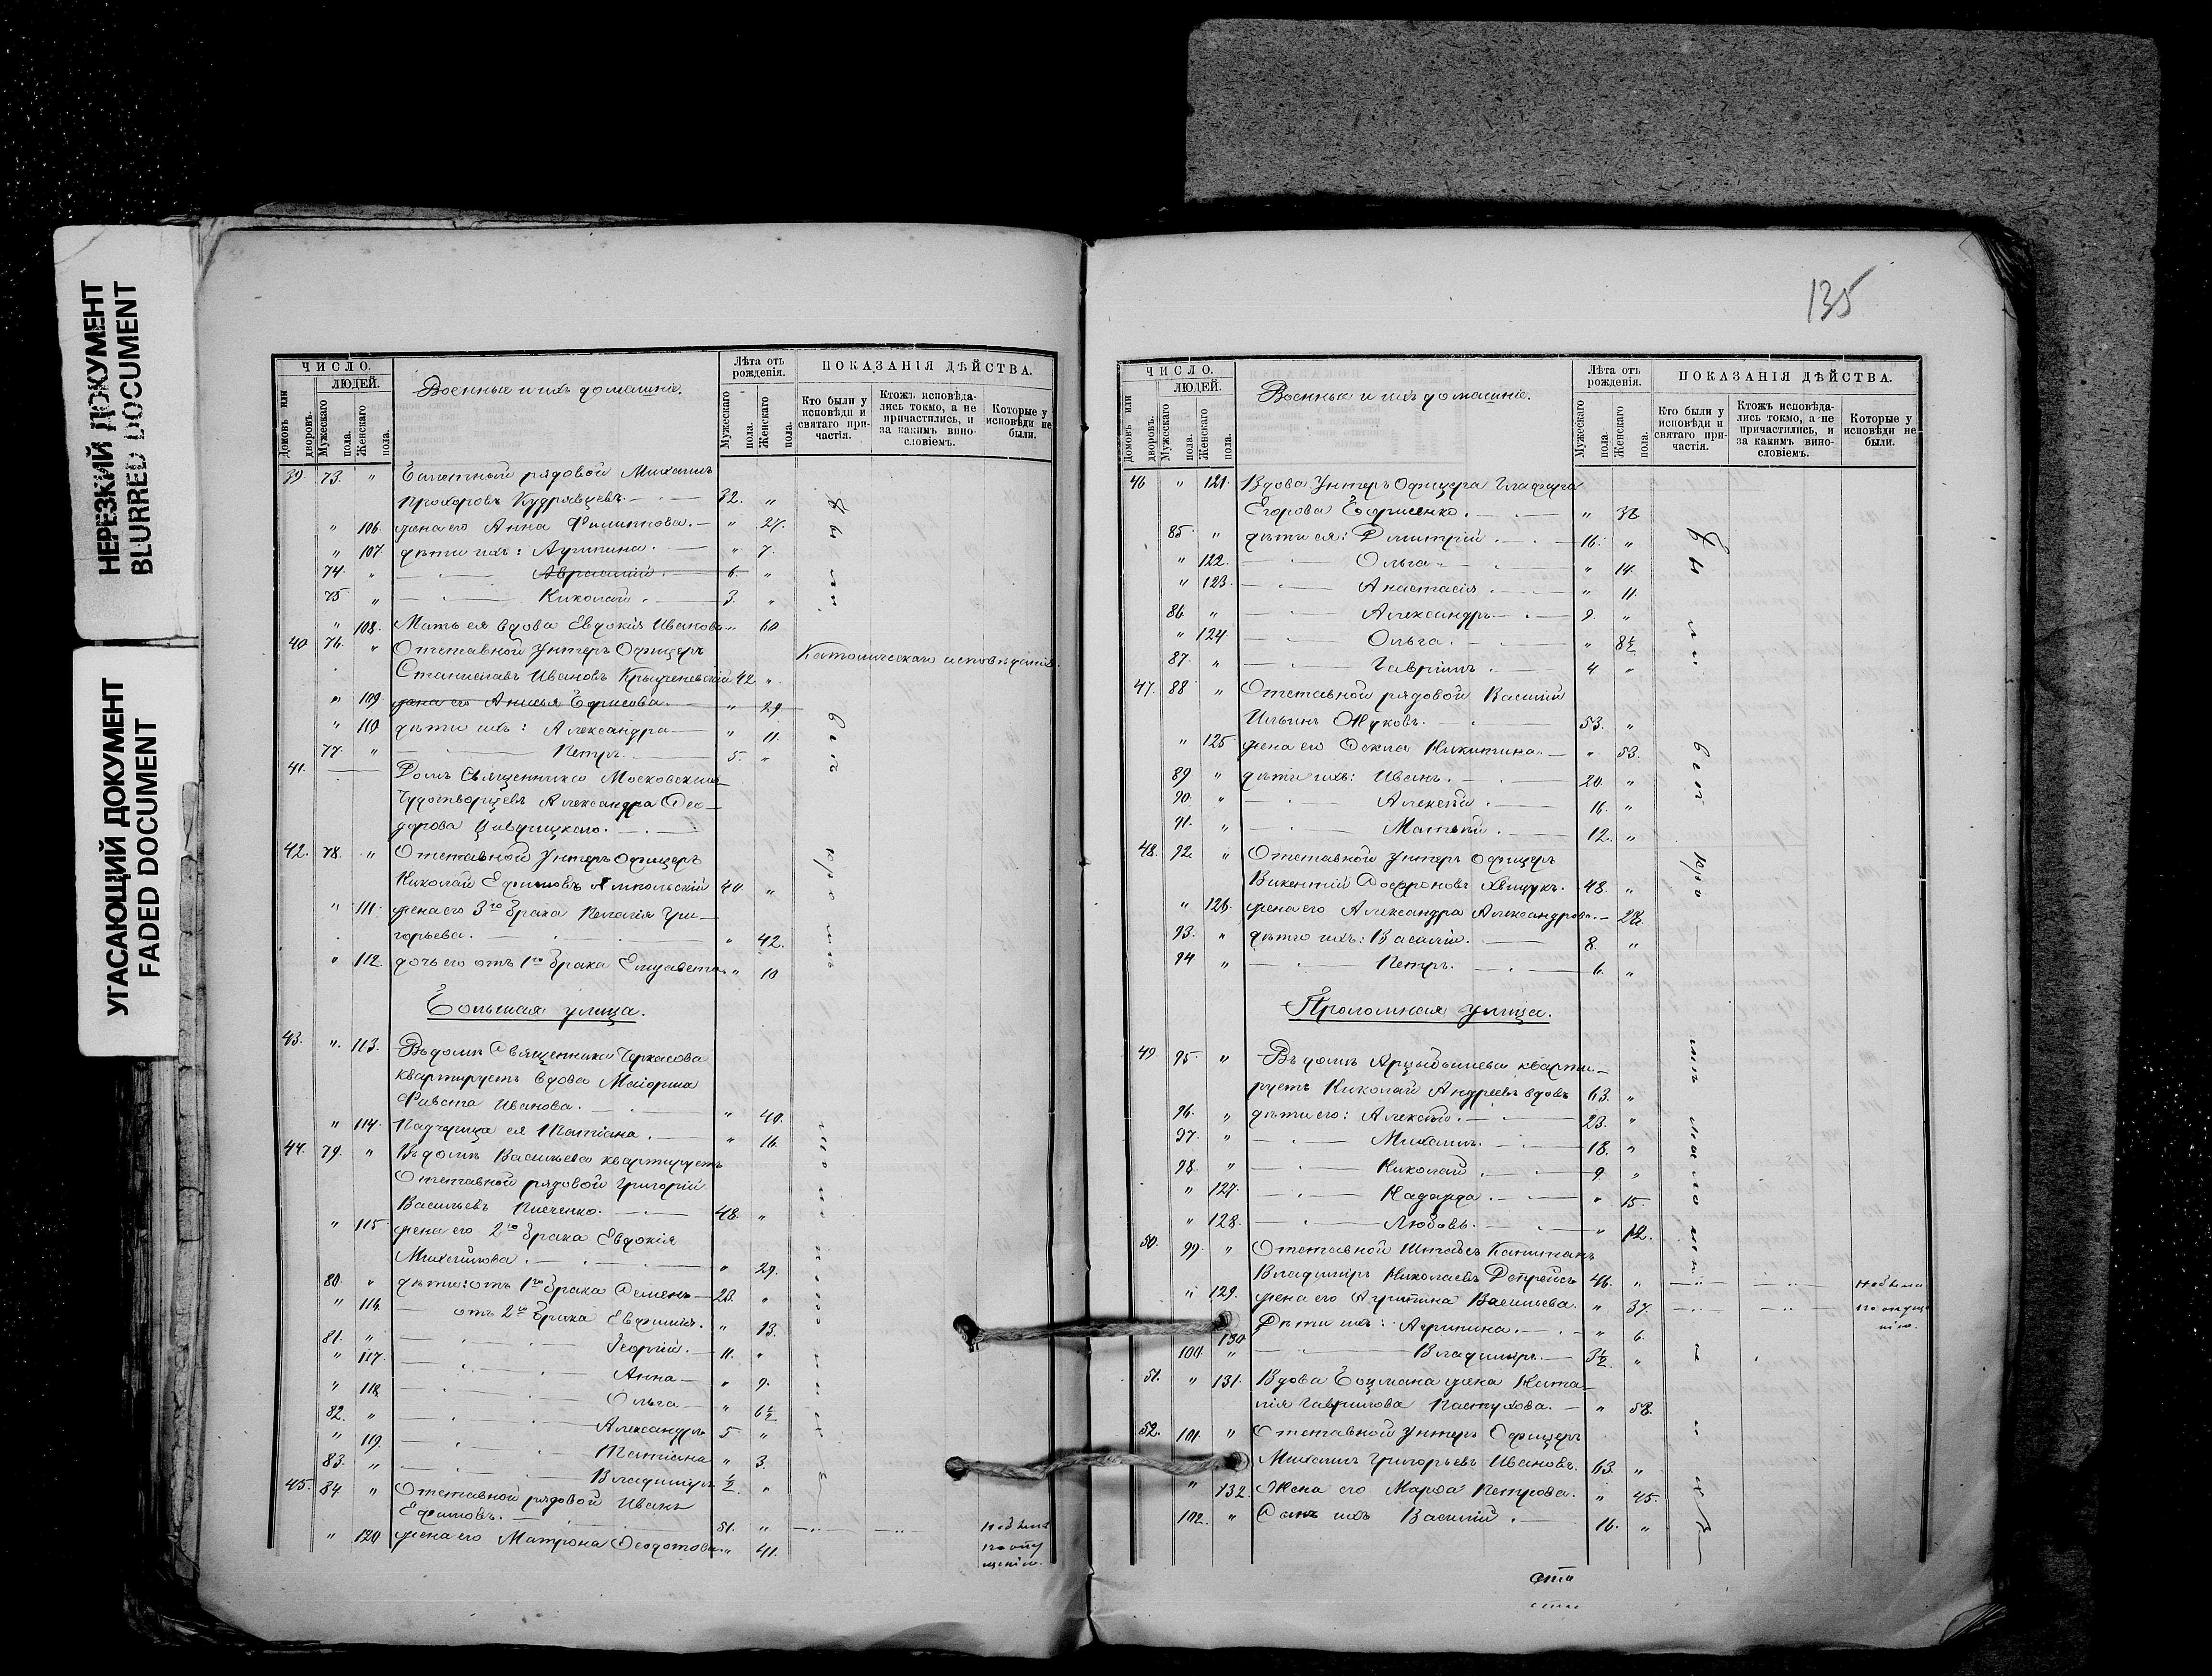 НЕРЕЗКИЙ ДОКУМЕНТ
BLURRED DOCUMENT
УГАСАЮЩИЙ ДОКУМЕНТ
FADED DOCUMENT
ЧИСЛО.
ЛЮДЕЙ.
Домовъ или дворовъ.
Мужескаго пола.
Женскаго пола.
Военные и ихъ домашніе.
Лѣта отъ рожденія.
Мужескаго пола.
Женскаго пола.
ПОКАЗАНІЯ ДѢЙСТВА.
Кто были у исповѣди и святаго причастія.
Ктожъ исповѣдались токмо, а не причастились, и за какимъ винословіемъ.
Которые у исповѣди не были.
39. 73. " Билетный рядовой Михаилъ
Прохоровъ Кудрявцевъ. 32. "
" 106. жена его Анна Филиппова. " 27.
" 107. дѣти ихъ: Агрипина. " 7.
74. " 6. "
75 " Николай. 3. "
" 108. Мать ея вдова Евдокія Иванова " 60
40 76. " Отставной Унтеръ Офицеръ
Католическаго исповѣданія.
Станиславъ Ивановъ 42 "
" 109 жена его Анисья Борисова. " 29
" 110 дѣти ихъ: Александра " 11.
77. " Петръ. 5. "
41. Домъ Священника Московскихъ
Чудотворцевъ Александра Ѳео-
дорова
42. 78. " Отставной Унтеръ Офицеръ
Николай Ефимовъ Ямпольскій 40. "
" 111. жена его 3го брака Пелагія Гри-
горьева. " 42.
" 112. дочь его отъ 1го брака Елисавета " 10
Большая улица.
43. " 113. Въ домѣ Священника Черкасова
квартируетъ вдова Маіорша
Ѳивста Иванова. " 40.
" 114. Падчерица ея Татіана. " 16.
44. 79. " Въ домѣ Васильева квартируетъ
Отставной рядовой Григорій
Васильевъ 48. "
" 115. жена его 2го брака Евдокія
Михайлова. " 29.
80. " дѣти: отъ 1го брака Семенъ 20. "
" 116. отъ 2го брака Евфимія. " 13.
81. " Георгій. 11. "
" 117. Анна " 9.
" 118. Ольга " 6½
82. " Александръ 5 "
" 119. Татіана " 3.
83. " Владиміръ ½. "
45. 84 " Отставной рядовой Иванъ
Ефимовъ. 51. "
" 120 жена его Матрона Ѳеодотова " 41.
не были
по опу
щенію.
135
ЧИСЛО.
ЛЮДЕЙ.
Домовъ или дворовъ.
Мужескаго пола.
Женскаго пола.
Военные и ихъ домашніе.
Лѣта отъ рожденія.
Мужескаго пола.
Женскаго пола.
ПОКАЗАНІЯ ДѢЙСТВА.
Кто были у исповѣди и святаго причастія.
Ктожъ исповѣдались токмо, а не причастились, и за какимъ винословіемъ.
Которые у исповѣди не были.
46 " 121. Вдова Унтеръ Офицера Глафира
Егорова Борисенко. " 38
85. " дѣти ея: Димитрій. 16. "
" 122. Ольга " 14.
" 123. Анастасія " 11.
86. " Александръ 9. "
" 124 Ольга. " 8½
87. " Гавріилъ. 4 "
47. 88 " Отставной рядовой Василій
Ильинъ Жуковъ. 53. "
" 125. жена его Ѳекла Никитина. " 53.
89 " дѣти ихъ: Иванъ. 20. "
90. " Алексѣй. 16. "
91. " Матвѣй. 12. "
48. 92. " Отставной Унтеръ Офицеръ
Викентій 48. "
" 126. жена его Александра Александрова. 28.
93. " дѣти ихъ: Василій. 8. "
94 " Петръ. 6. "
Проломная улица.
49 95. " Въ домѣ Арцыбышева кварти-
руетъ Николай Андреевъ вдовъ 63. "
96. " дѣти его: Алексѣй. 23. "
97. " Михаилъ. 18. "
98. " Николай. 9. "
" 127. Надежда. " 15.
" 128. Любовь. " 12.
50. 99. " Отставной Штабсъ Капитанъ
Владиміръ Николаевъ 46. "
" 129. жена его Агрипина Васильева. " 37.
не были
по опуще
нію.
130. Дѣти ихъ: Агрипина. " 6.
100. " Владиміръ. 3½. "
51. " 131. Вдова Боцмана жена Ната-
лія Гаврилова Пастухова. " 58.
52. 101. " Отставной Унтеръ Офицеръ
Михаилъ Григорьевъ Ивановъ. 63. "
" 132. Жена его Марѳа Петрова. " 45.
102. " Сынъ ихъ Василій. 16. "